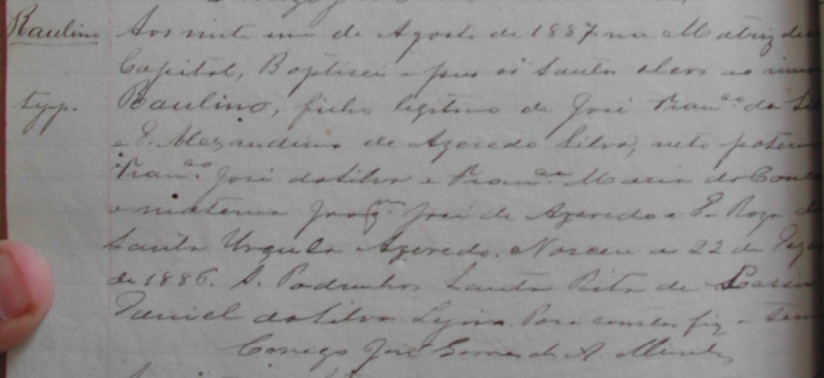 Raulino Aos vinte um de Agosto de 1887 na Matriz des
Capital, Baptisei e puz os Santos oleos ao inno
typ. Raulino, filho legitimo de José Franᶜᵒ da Sil
e D. Alexandrina de Azeredo Silva, neto patern
Franᶜᵒ José da Silva e Franᶜᵃ Maria da Conc
e materna Joaqᵐ José de Azeredo e D. Roza de
Santa Urçula Azeredo. Nasceu a 22 de
de 1886. S. Padrinhos Santa Rita de Cassia
Daniel da Silva Para constar fiz o term
Conego José Gomes de A.